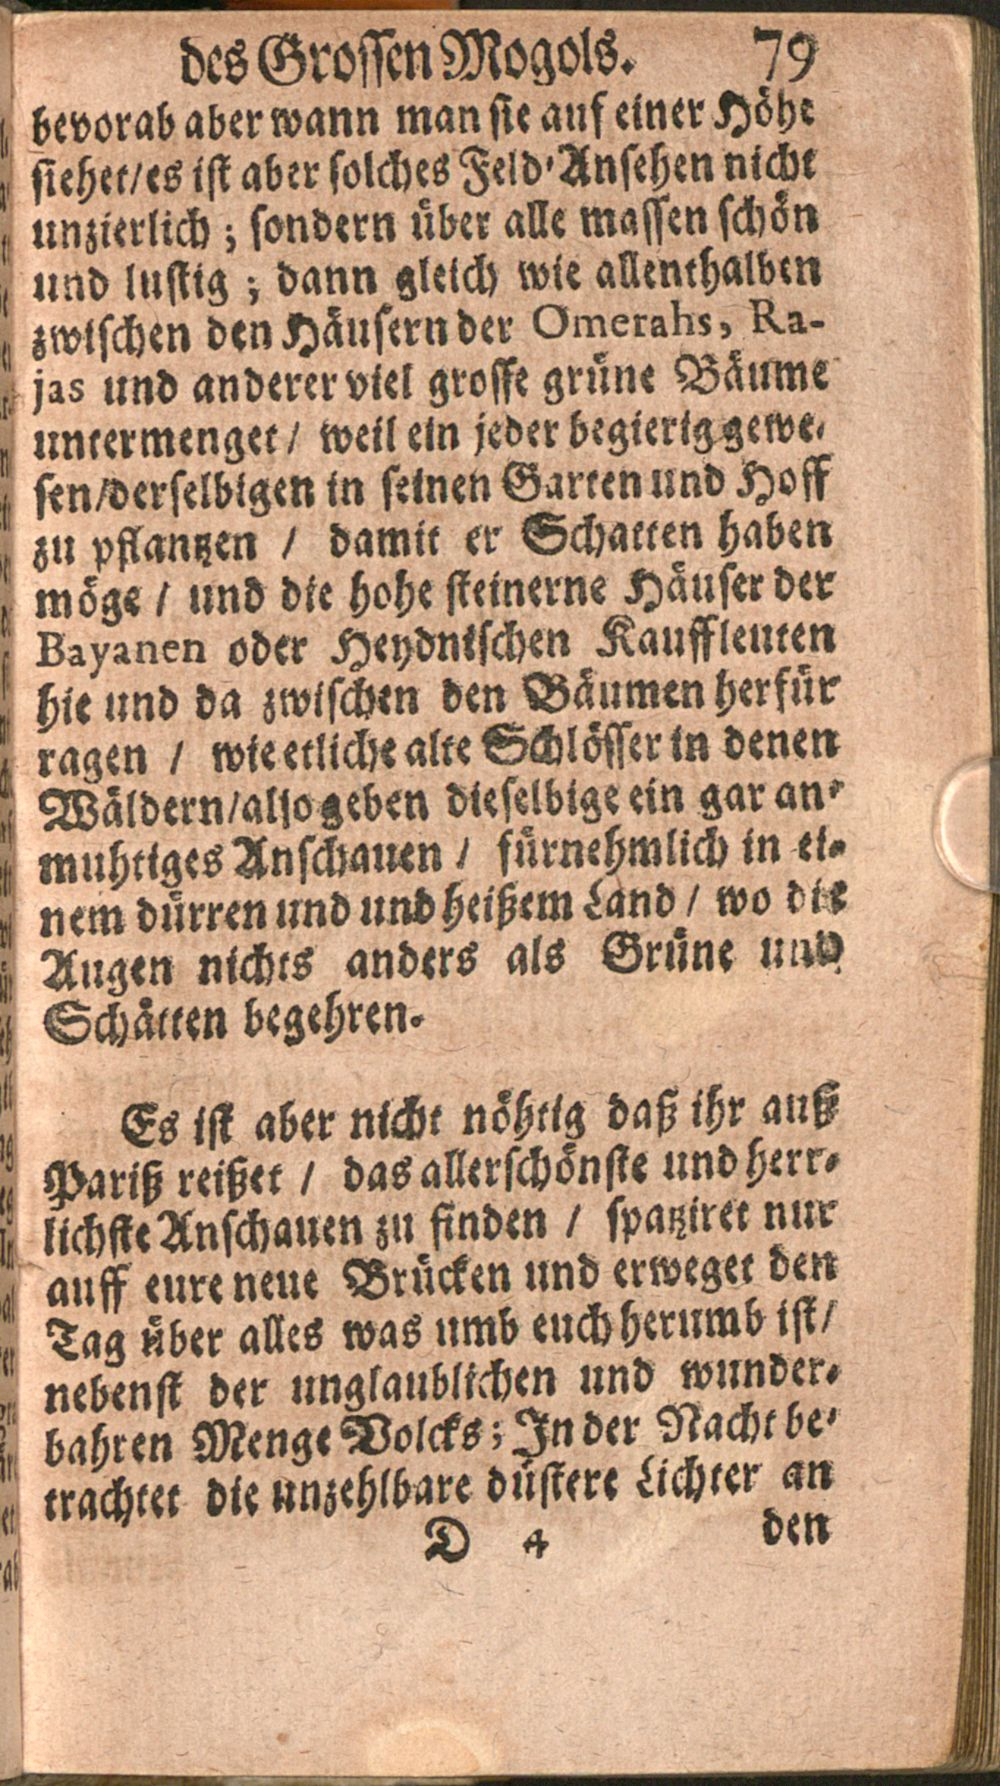 des Grossen Mogols. 79
bevorab aber wann man sie auf einer Höhe
siehet/es ist aber solches Feld-Ansehen nicht
unzierlich; sondern über alle massen schön
und lustig; dann gleich wie allenthalben
zwischen den Häusern der Omerahs, Ra-
jas und anderer viel grosse grüne Bäume
untermenget/ weil ein jeder begierig gewe-
sen/derselbigen in seinen Garten und Hoff
zu pflantzen / damit er Schatten haben
möge / und die hohe steinerne Häuser der
Bayanen oder Heydnischen Kauffleuten
hie und da zwischen den Bäumen herfür
ragen / wie etliche alte Schlösser in denen
Wäldern/also geben dieselbige ein gar an-
muhtiges Anschauen / fürnehmlich in ei-
nem dürren und und heißem Land / wo die
Augen nichts anders als Grüne und
Schätten begehren.
Es ist aber nicht nöhtig daß ihr auß
Pariß reißet / das allerschönste und herr-
lichste Anschauen zu finden / spatziret nur
auff eure neue Brücken und erweget den
Tag über alles was umb euch herumb ist/
nebenst der unglaublichen und wunder-
bahren Menge Volcks; In der Nacht be-
trachtet die unzehlbare düstere Lichter an
D 4 den